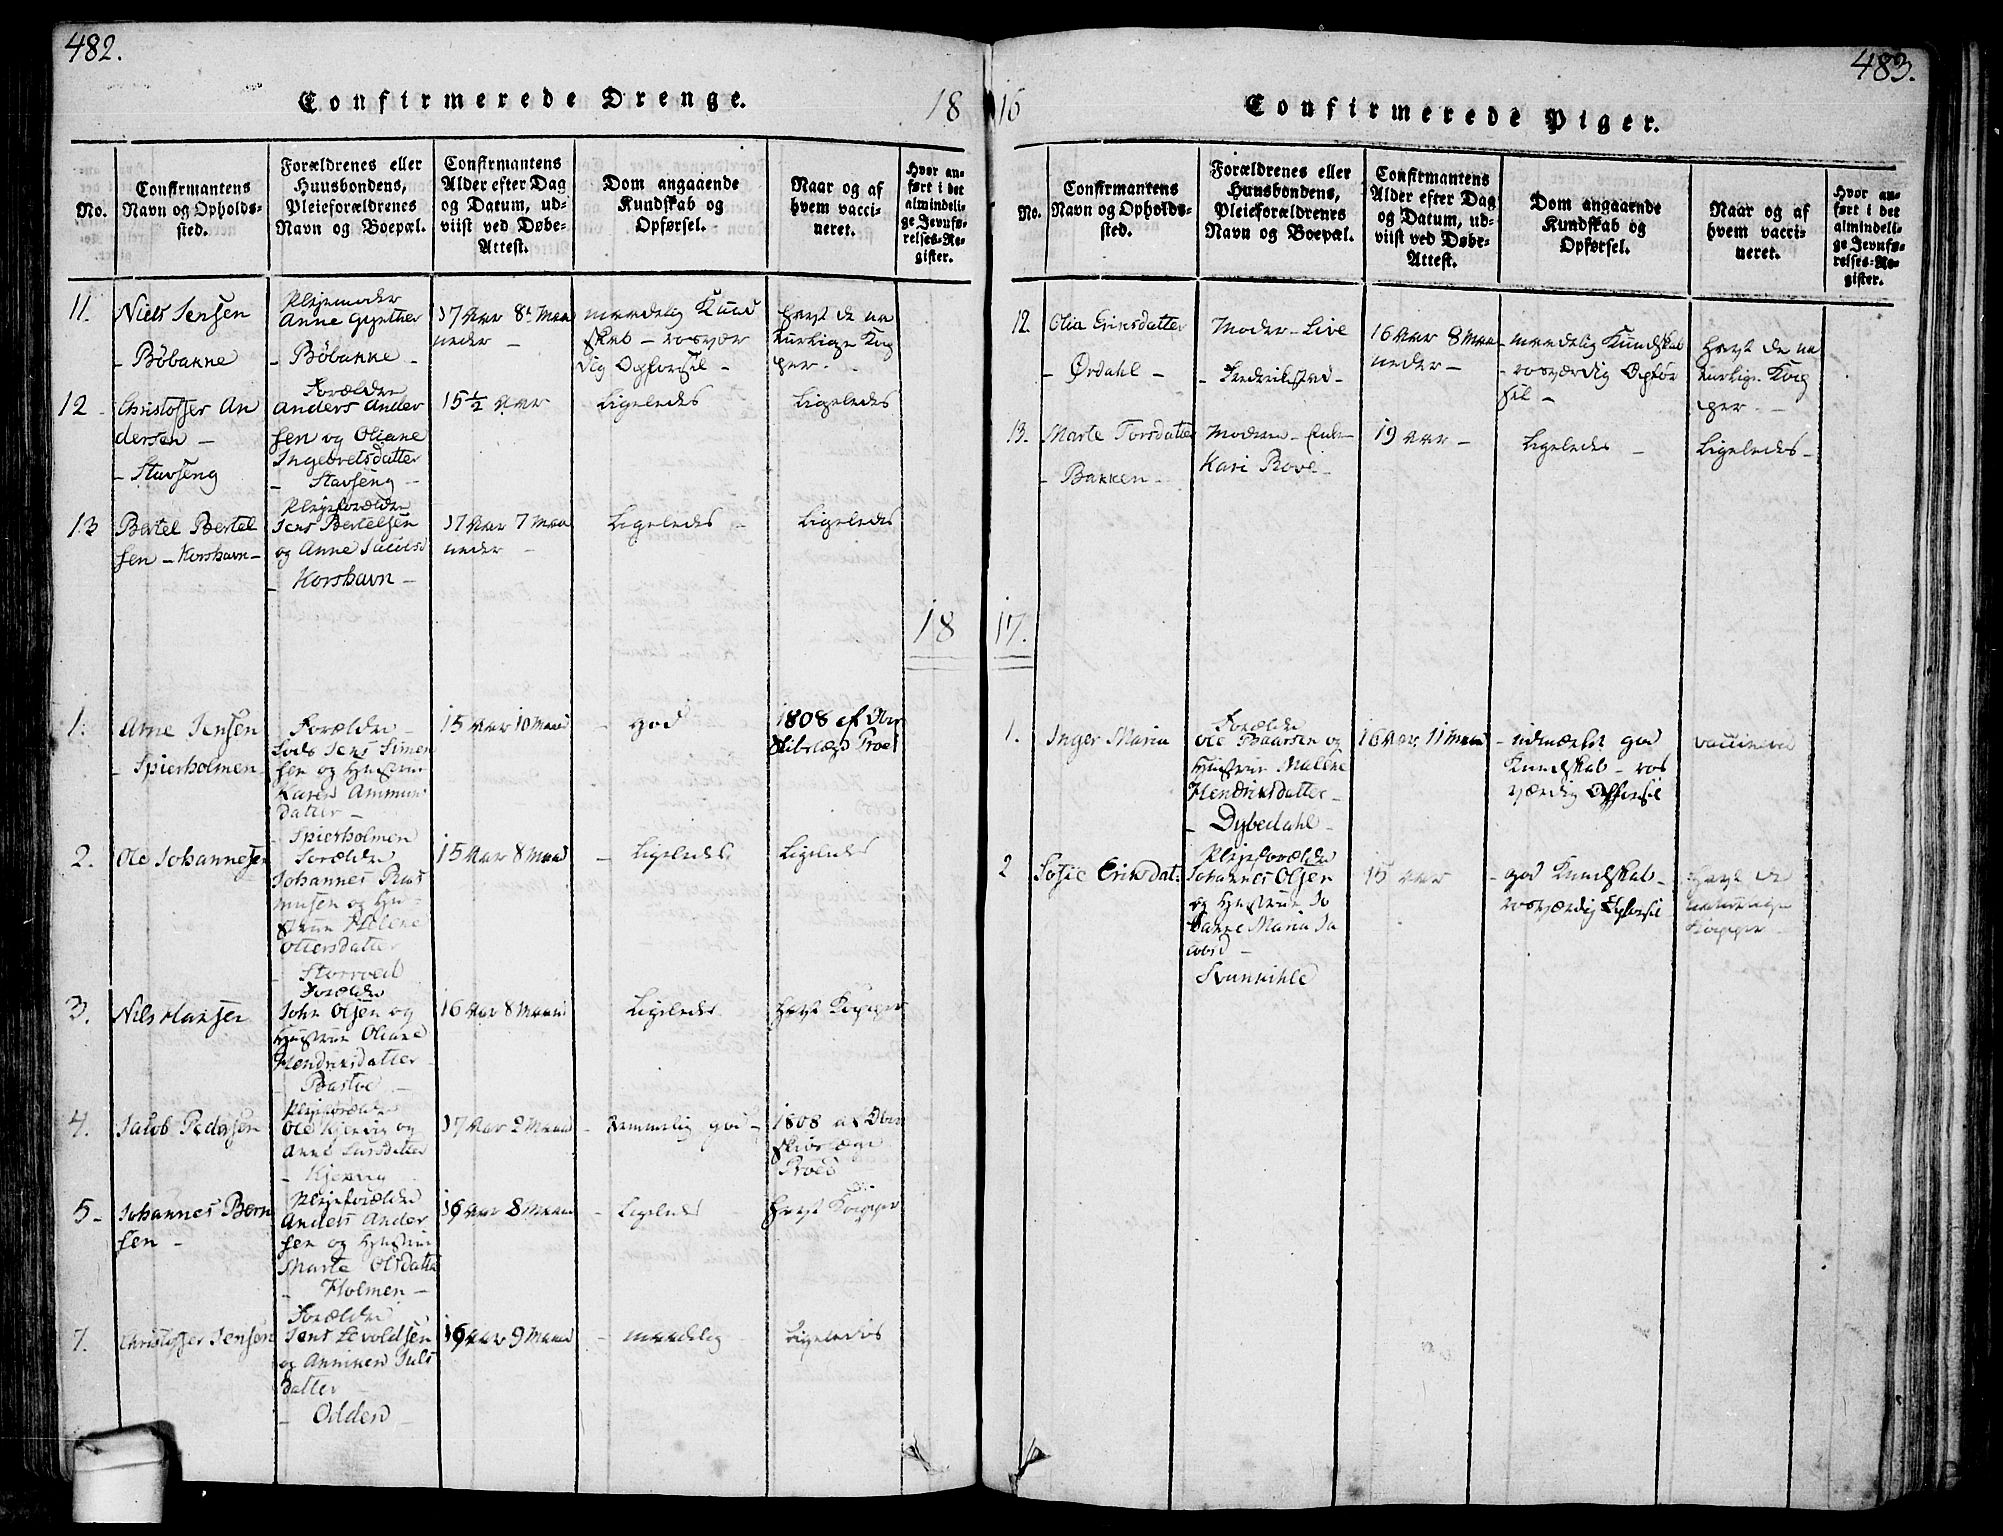 482.
Confirmerede Drenge.
18
No.
Confirmantens
Navn og Opholds-
sted.
Forældrenes eller
Huusbondens,
Pleieforældrenes
Navn og Boepæl.
Confirmantens
Alder efter Dag
og Datum, ud-
viist ved Døbe-
Attest.
Dom angaaende
Kundskab og
Opførsel.
Naar og af
hvem vacci-
neret.
Hvor an-
ført i det
almindeli-
ge Jevnfø-
relses-Re-
gister.
11.
Niels Jensen
- Bøbakke
Plejemoder
Anne Gynther
- Bøbakke -
17 Aar 8 Maa
neder -
maadelig Kund
skab - rosvær
dig Opførsel -
havt de na
turlige Kop
per. -
12 -
Christoffer An
dersen -
- Stavseng
Forældre
Anders Ander
sen og Oliane
Ingebretsdatter
- Stavseng -
15 1/2 Aar
Ligeledes
Ligeledes
13
Bertel Bertel
sen - Korshavn -
Plejeforældre
Jens Bertelsen
og Anne Jacobsd
- Korshavn -
17 Aar 7 Maa
neder -
Ligeledes -
Ligeledes
18
1.
Arne Jensen
- Spierholmen
Forældre -
Lods Jens Simen
sen og Hustrue
Karen Ammun
datter -
- Spierholmen
15 Aar 10 Maand
- god
1808 af Over
skibslæge Proet
2.
Ole Johannesen
Forældre
Johannes Ras
musen og Hu-
strue Helene
Ollersdatter
- Storrød
15 Aar 8 Maand
- Ligeledes
Ligeledes
3.
Nils Hansen
Forældre
John Olsen og
Hustrue Oliane
Hendriksdatter
- Bastøe -
16 Aar 8 Maand
Ligeledes
havt Kopper
4.
Jacob Pedersen
Plejeforældre
Ole Kjervig og
Anne Larsdatter
- Kjervig
17 Aar 2 Maand
- temmelig god -
1808 af Over
skibslæge
Proet
5 -
Johannes Børn
sen -
Plejeforældre
Anders Ander
sen og Hustrue
Marte Olsdatter
- Holmen -
16 Aar 8 Maand
- Ligeledes
havt Kopper
7.
Christoffer Jensen
Forældre
Jens Evoldsen
og Anniken Juls
datter -
- Odden -
16 Aar 9 Maand
- maadelig
Ligeledes
16
Confirmerede Piger.
483.
No.
Confirmantens
Navn og Opholds-
sted.
Forældrenes eller
Huusbondens,
Pleieforældrenes
Navn og Boepæl.
Confirmantens
Alder efter Dag
og Datum, ud-
viist ved Døbe-
Attest.
Dom angaaende
Kundskab og
Opførsel.
Naar og af
hvem vacci-
neret.
Hvor an-
ført i det
almindeli-
ge Jevnfø-
relses-Re-
gister.
12.
Olia Eriksdatter
- Ørdahl -
Moder - Live
- Frederiksted -
16 Aar 8 Maa
neder -
- maadelig Kundskab
- rosværdig Opfør
sel -
havt de na
turlige Kop
per. -
13.
Marte Torsdatter
- Bakken -
Moderen - Enke
Kari Rove -
19 Aar -
Ligeledes -
Ligeledes -
17.
1.
Inger Maria
Forældre
Ole Baarsen og
Hustrue Malene
Hendriksdatter -
- Dybedahl -
16 Aar, 11 Maand
- udmærket god
Kundskab - ros
værdig Opførsel
vaccineret
2
Sofie Eriksdat:
Plejeforældre
Johannes Olsen
og Hustrue Jo
hanne Maria Ja
cobsd -
- Kunnihle
15 Aar
- god Kundskab -
rosværdig Opførsel
havt de
naturlige
Kopper -